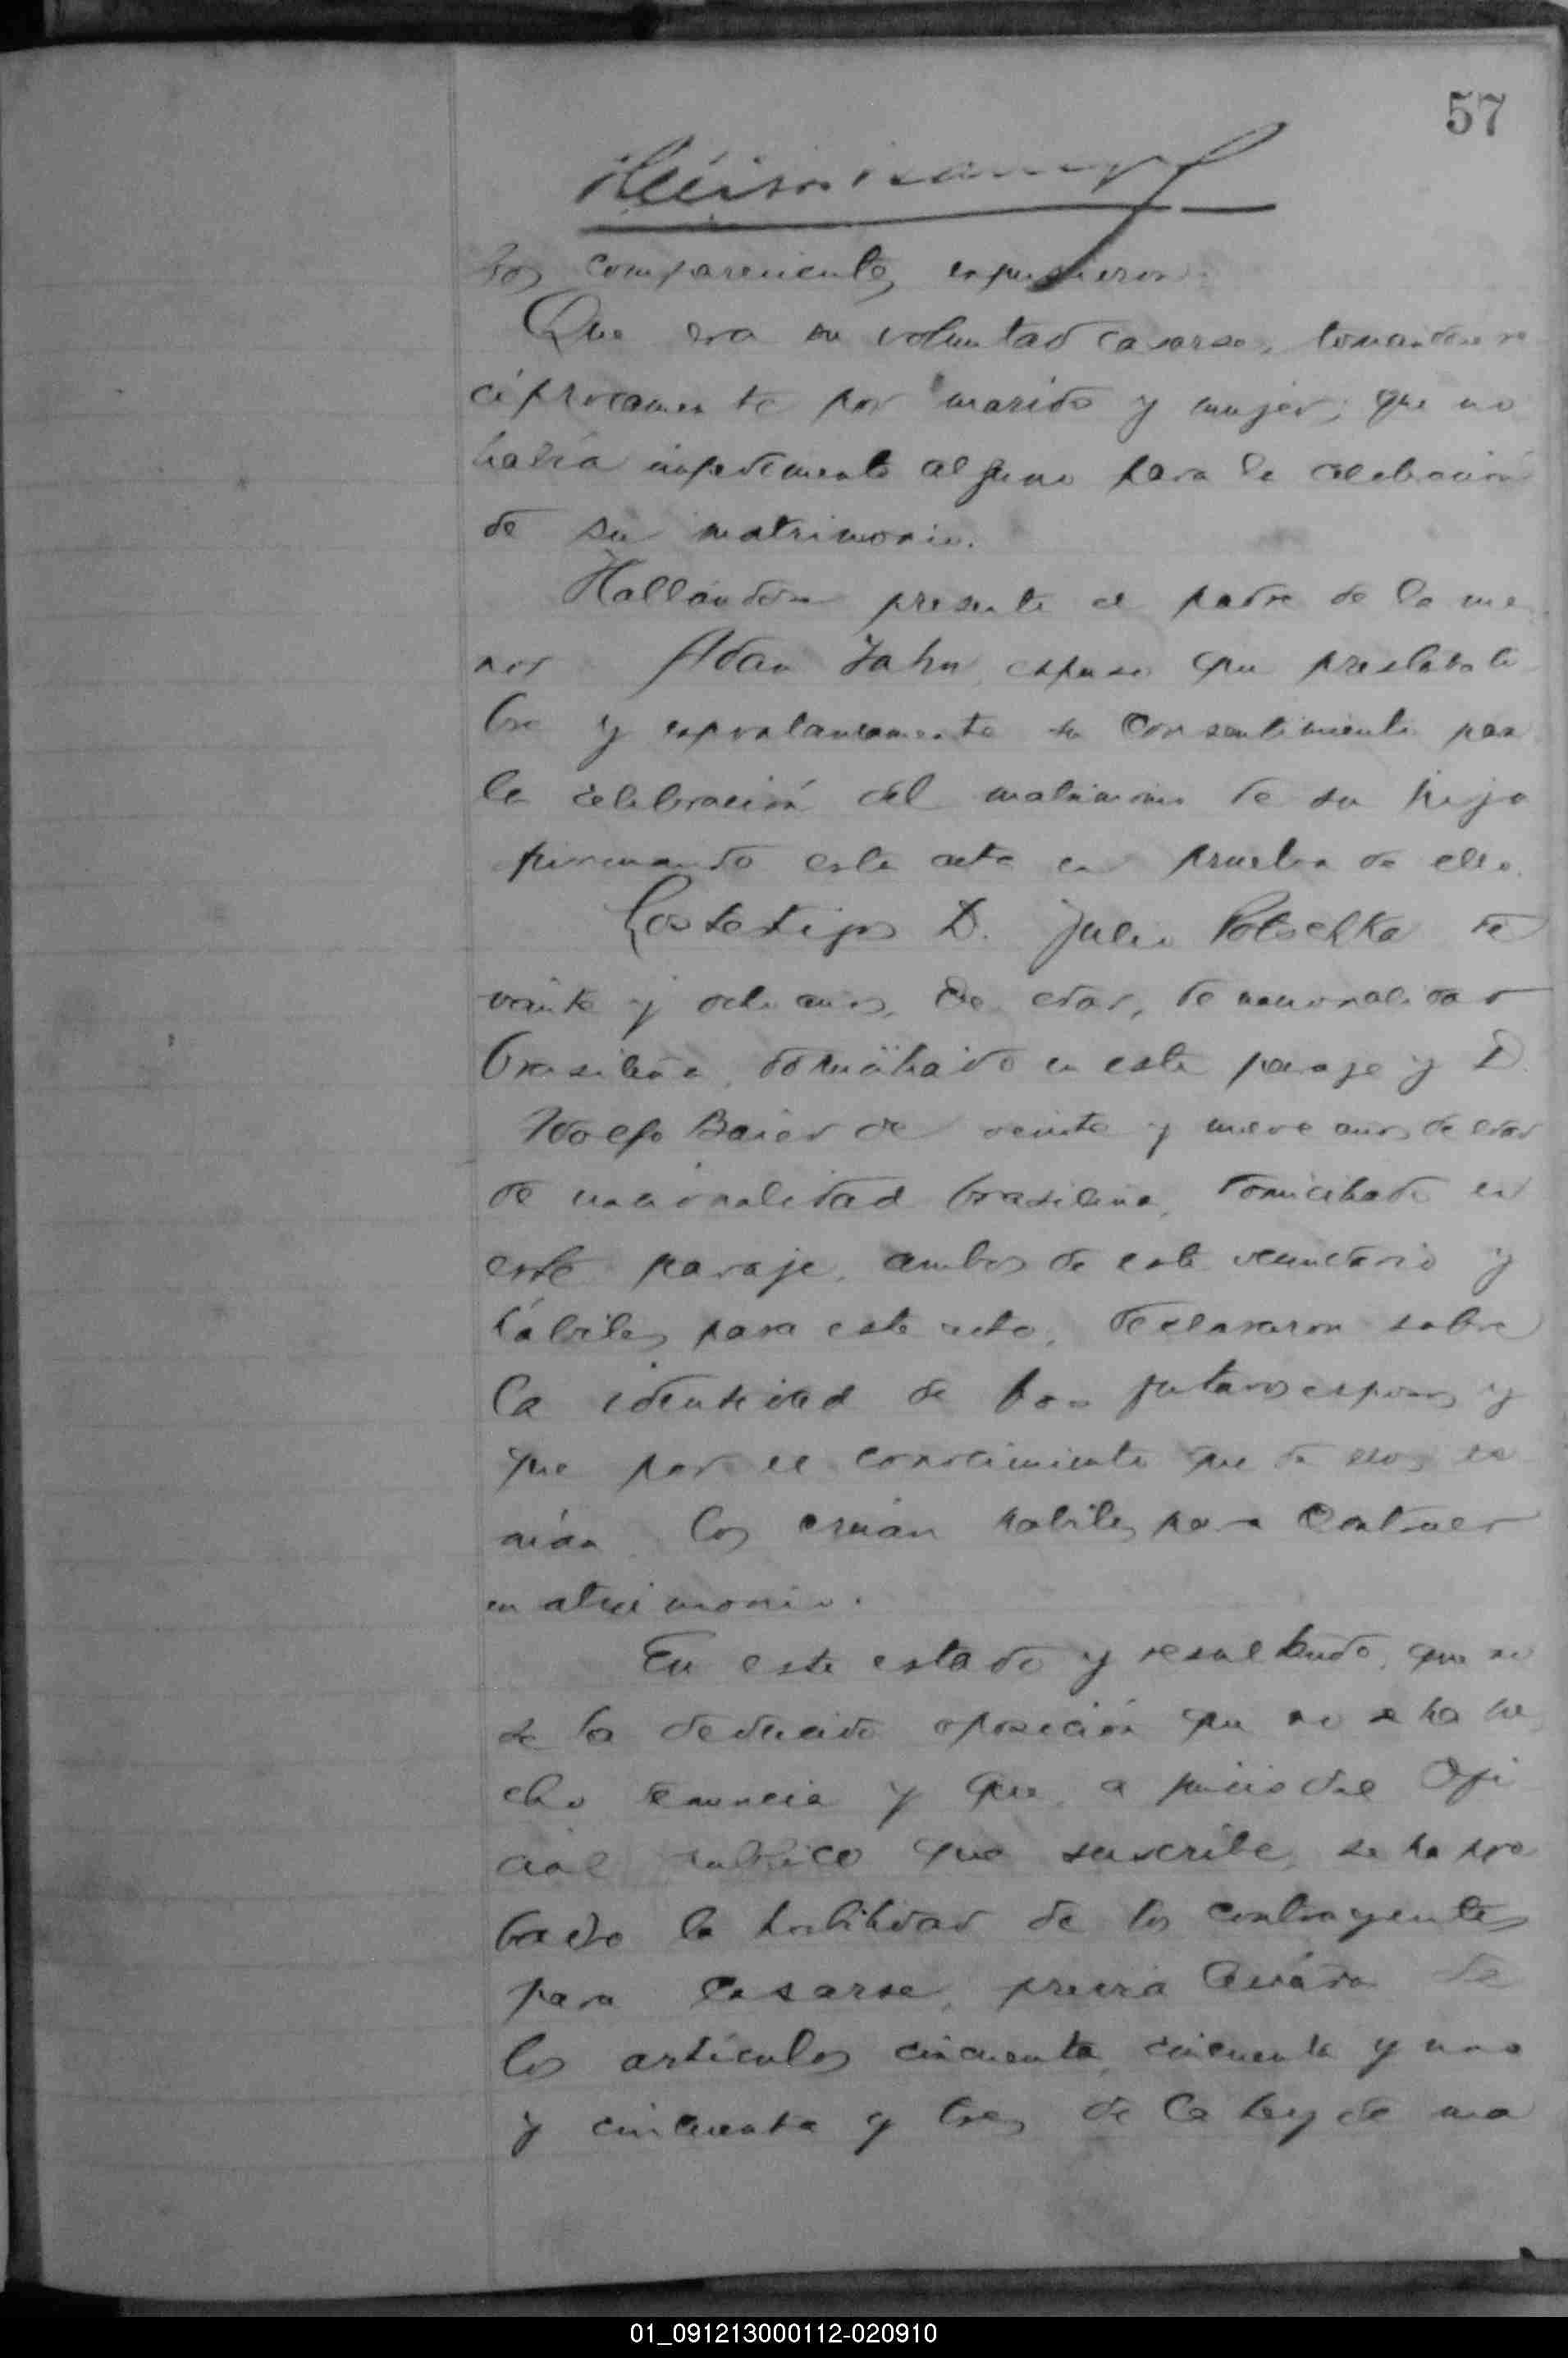 57
Los comparecientes expusieron:
Que era su voluntad casarse, tomandose re
ciprocamente por marido y mujer, que no
había impedimento alguno para la celebración
de su matrimonio.
Hallándose presente el padre de la me
nor Adan Jahn, expuso que prestaba li
bre y espontaneamente su consentimiento para
la celebración del matrimonio de su hija
firmando este acta en prueba de ello.
Los testigos D. Julio Potschka de
veinte y ocho años, de edad, de nacionalidad
brasileña, domiciliado en este paraje y D.
Adolfo Baier de veinte y nueve años de edad
de nacionalidad brasileña, domiciliado en
este paraje, ambos de este vecindario y
hábiles para este acto, declararon sobre
la identidad de los futuros esposos y
que por el conocimiento que de ellos te
nían los creían habiles para contraer
matrimonio.
En este estado y resultando, que no
se ha deducido oposición que no se ha he
cho denuncia y que a juicio del Ofi
cial Publico que suscribe, se ha pro
bado la habilidad de los contrayentes
para casarse, previa lectura de
los artículos cincuenta, cincuenta y uno
y cincuenta y tres de la Ley de ma
01_091213000112-020910